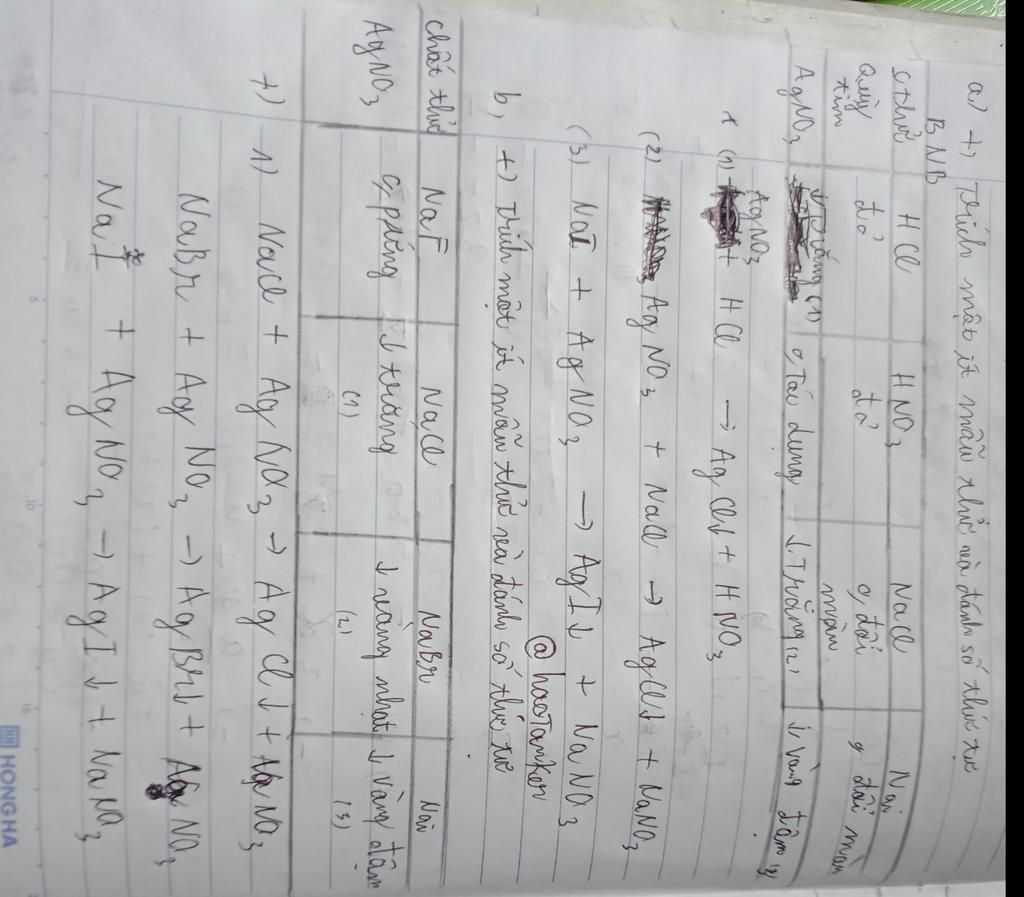 a) +) Trích một ít mẫu thử và đánh số thứ tự
BNB
C thử HCl HNO₃ NaCl NaI
Quỳ tím đỏ đỏ o đổi màu o đổi màu
AgNO₃ ↓ Trắng (1) o Tác dụng ↓ Trắng (2) ↓ Vàng đậm (3)
(1) AgNO₃ + HCl → AgCl↓ + HNO₃
(2) AgNO₃ + NaCl → AgCl↓ + NaNO₃
(3) NaI + AgNO₃ → AgI↓ + NaNO₃
@haoTanker
b, +) Trích một ít mẫu thử và đánh số thứ tự
Chất thử NaF NaCl NaBr NaI
AgNO₃ o pứng ↓ trắng (1) ↓ vàng nhạt (2) ↓ vàng đậm (3)
+) 1) NaCl + AgNO₃ → AgCl↓ + NaNO₃
NaBr + AgNO₃ → AgBr↓ + NO₃
NaI + AgNO₃ → AgI↓ + NaNO₃
HONG HA